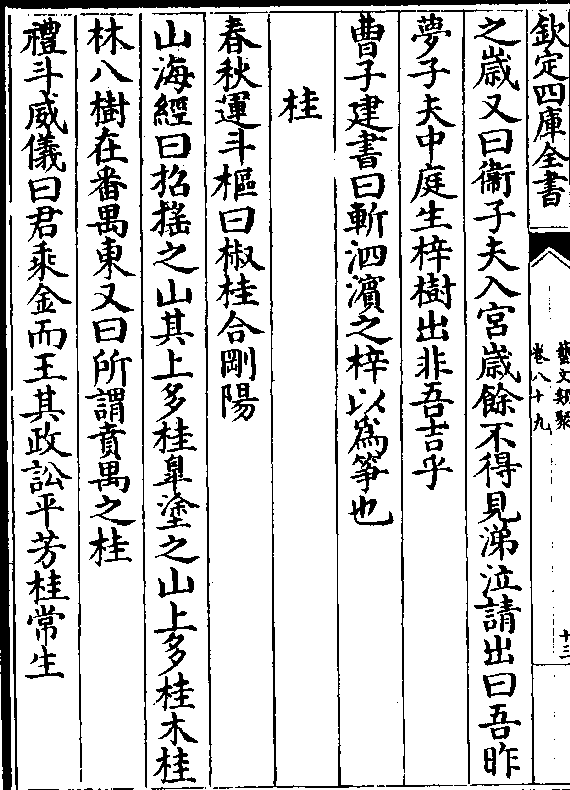 欽定四庫全書
藝文類聚
卷八十九
十三
之歲又曰衞子夫入宮歲餘不得見涕泣請出曰吾昨
夢子夫中庭生梓樹出非吾吉乎
曹子建書曰斬泗濱之梓以為箏也
桂
春秋運斗樞曰椒桂合剛陽
山海經曰招搖之山其上多桂臯塗之山上多桂木桂
林八樹在番禺東又曰所謂賁禺之桂
禮斗威儀曰君乘金而王其政訟平芳桂常生